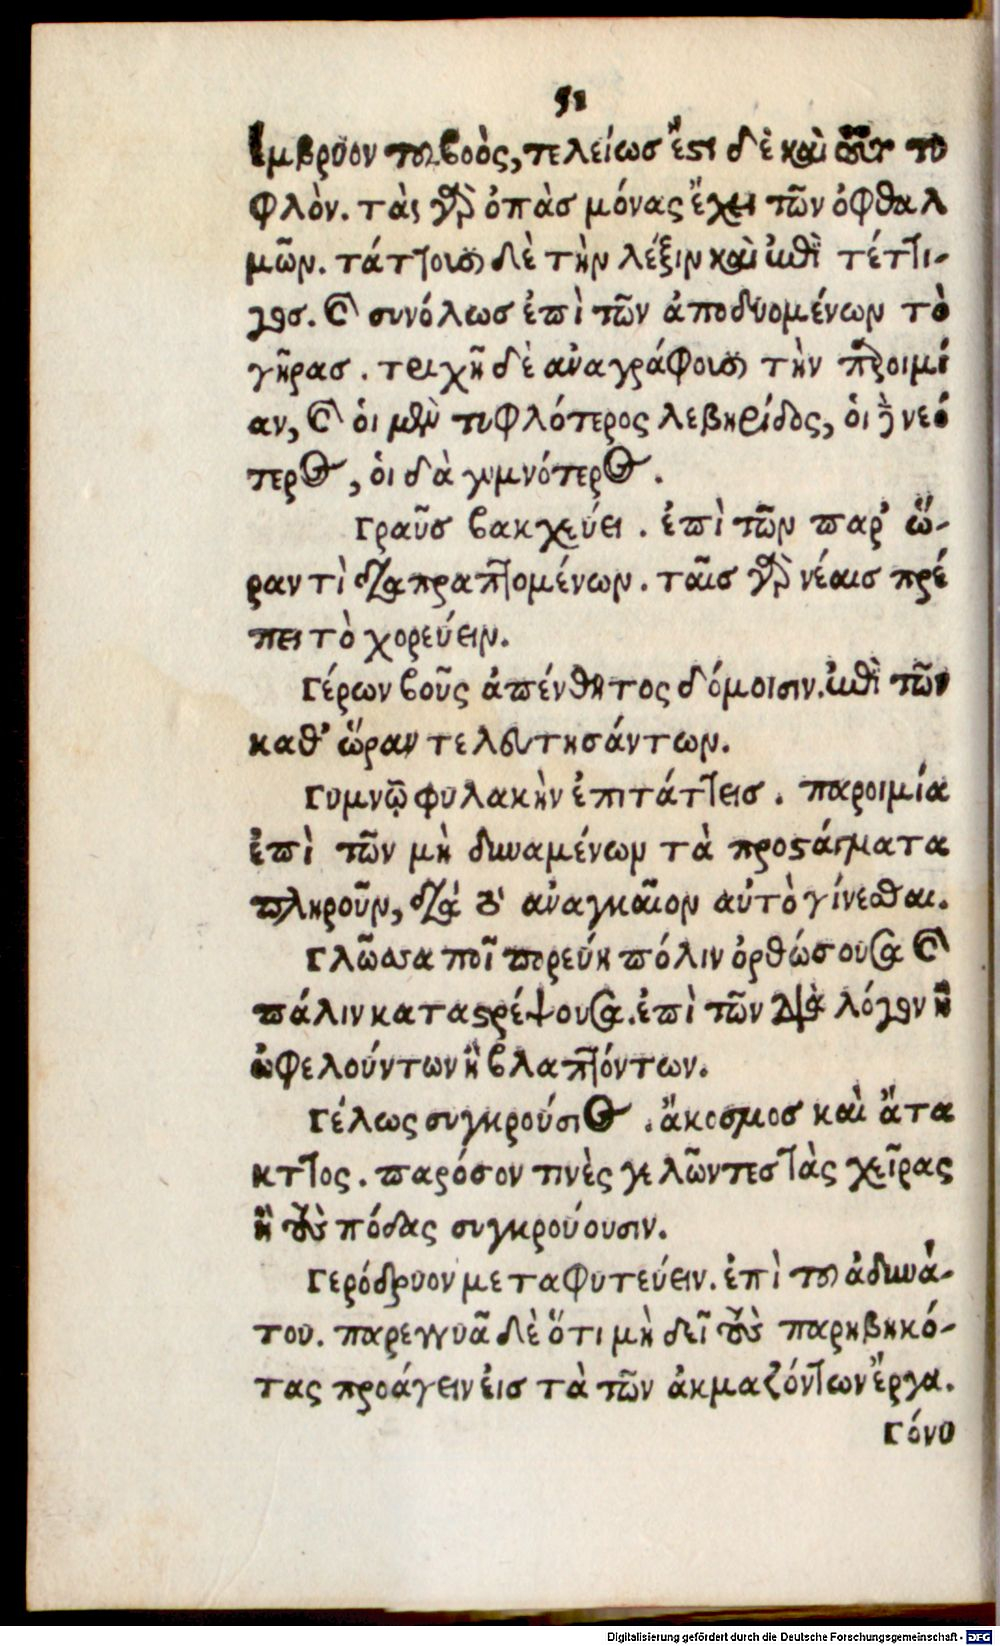 51
ἔμβρυον τοῦ βοὸς, τελείωσ ἔστι δὲ καὶ οὗτος τυ
φλὸν. τὰς γὰρ ὀπὰσ μόνας ἔχει τῶν ὀφθαλ
μῶν. τάττουσι δὲ τὴν λέξιν καὶ ἐπὶ τέττι-
γοσ. καὶ συνόλωσ ἐπὶ τῶν ἀποδυομένων τὸ
γῆρασ. τριχῆ δὲ ἀναγράφουσι τὴν παροιμί
αν, καὶ ὁι μὲν τυφλότερος λεβηρίδος, ὁι δὲ νεό
τερος, ὁι δὰ γυμνότερος.
Γραῦσ βακχεύει. ἐπὶ τῶν παρ' ὥ-
ραν τὶ διαπραττομένων. ταῖσ γὰρ νέαισ πρέ
πει τὸ χορεύειν.
Γέρων βοῦς ἀπένθητος δόμοισιν. ἐπὶ τῶν
καθ' ὥραν τελευτησάντων.
Γυμνῷ φυλακὴν ἐπιτάττεισ. παροιμία
ἐπὶ τῶν μὴ δυναμένων τὰ προστάγματα
πληροῦν, διὰ τὸ ἀναγκαῖον αὐτὸ γίνεσθαι.
Γλῶσσα ποῖ πορεύη πόλιν ὀρθώσουσα καὶ
πάλιν καταστρέψουσα. ἐπὶ τῶν διὰ λόγον ἢ
ὠφελούντων ἢ βλαπτόντων.
Γέλως συγκρούσιος. ἄκοσμος καὶ ἄτα
κττος. παρόσον τινὲς γελῶντεσ τὰς χεῖρας
ἢ τοὺς πόδας συγκρούουσιν.
Γερόδρυον μεταφυτεύειν. ἐπὶ τοῦ ἀδυνά-
του. παρεγγυᾶ δὲ ὅτι μὴ δεῖ τοὺς παρηβηκό-
τας προάγειν ἐισ τὰ τῶν ἀκμαζόντων ἔργα.
Γόνυ
Digitalisierung gefördert durch die Deutsche Forschungsgemeinschaft - DFG